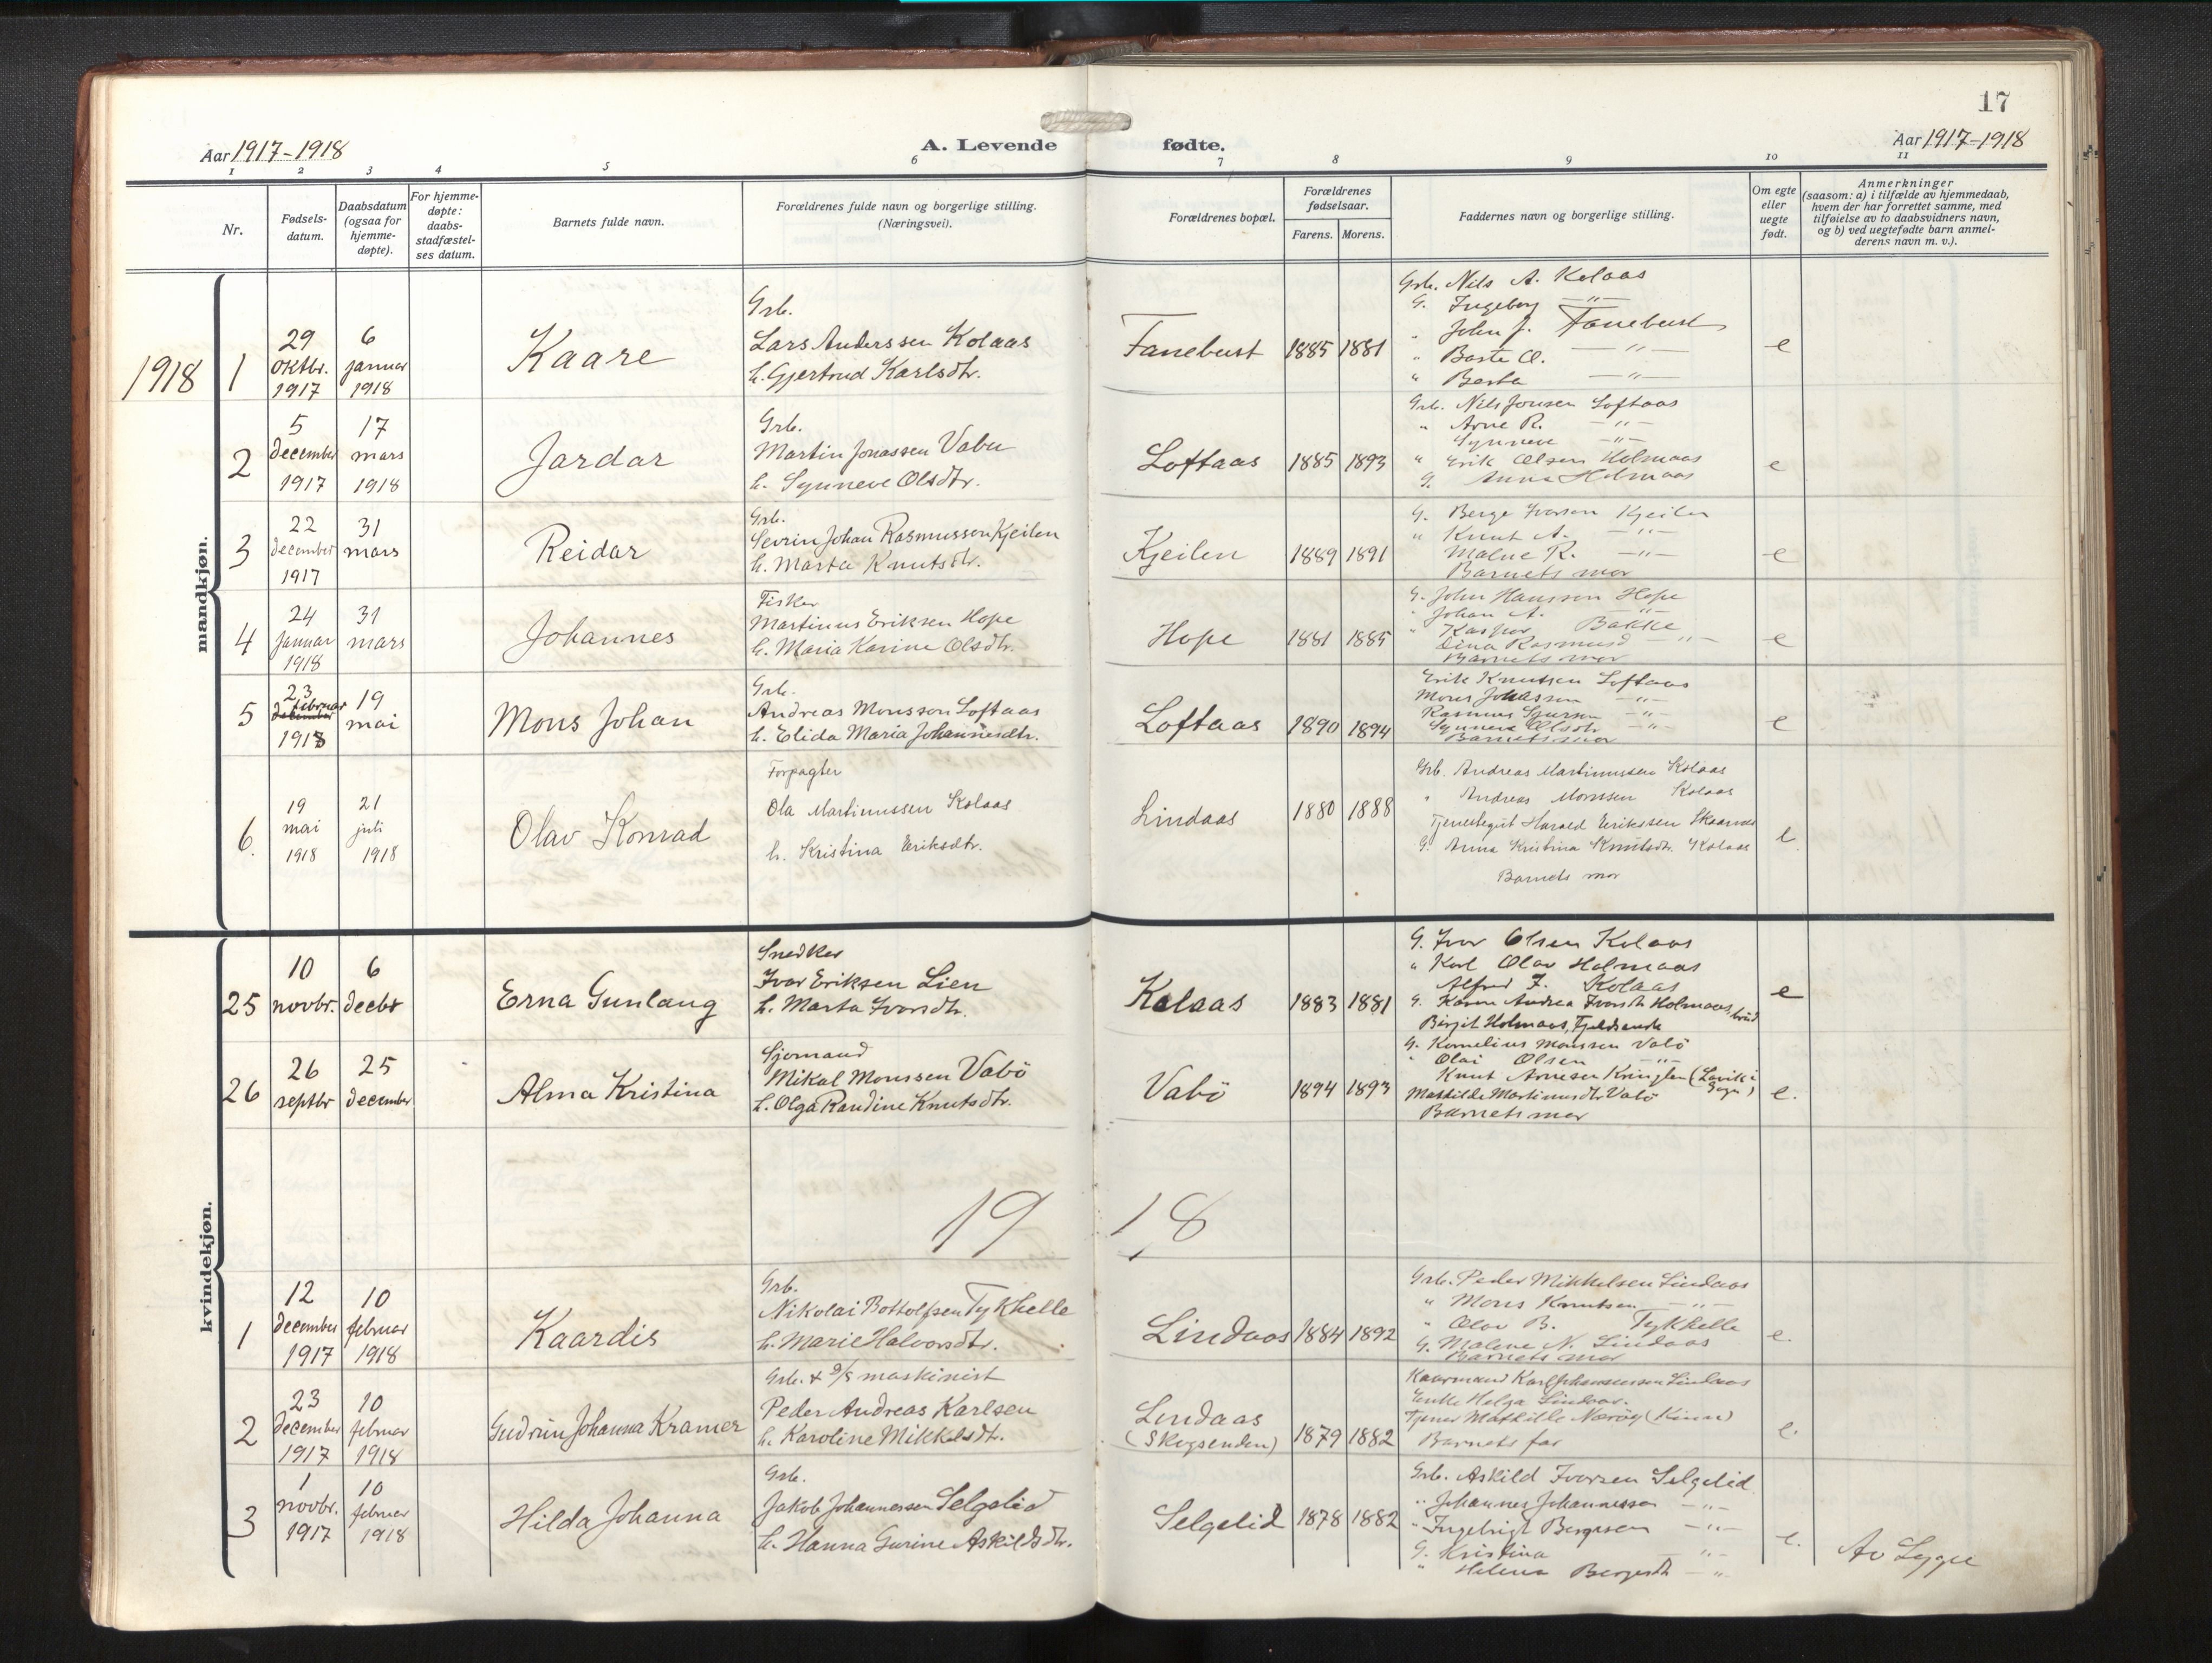 17
Aar 1917-1918
A. Levende
fødte.
Aar 1917-1918
1 2 3 4 5 6 7 8 9 10 11
Nr.
Fødsels-
datum.
Daabsdatum
(ogsaa for
hjemme-
døpte).
For hjemme-
døpte:
daabs-
stadfæstel-
ses datum.
Barnets fulde navn.
Forældrenes fulde navn og borgerlige stilling.
(Næringsvei).
Forældrenes bopæl.
Forældrenes
fødselsaar.
Farens. Morens.
Faddernes navn og borgerlige stilling.
Om egte
eller
uegte
født.
Anmerkninger
(saasom: a) i tilfælde av hjemmedaab,
hvem der har forrettet samme, med
tilføielse av to daabsvidners navn,
og b) ved uegtefødte barn anmel-
derens navn m. v.).
mandkjøn.
1918
1
29
oktbr.
1917
6
januar
1918
Kaare
Grb.
Lars Anderssen Kolaas
h. Gjertrud Karlsdtr.
Fanebust
1885 1881
Grb. Nils A. Kolaas
G. Ingeborg —"—
" John J. Fanebust
" Baste O. —"—
" Berta —"—
e
2
5
december
1917
17
mars
1918
Jardar
Grb.
Martin Jonassen Vabu
h. Synneve Olsdtr.
Loftaas
1885 1893
Grb. Nils Jonsen Loftaas
" Arne R. —"—
Synneve —"—
" Erik Olsen Holmaas
G. Anna Holmaas
e
3
22
december
1917
31
mars
Reidar
Grb.
Sevrin Johan Rasmussen Kjeilen
h. Marta Knutsdtr.
Kjeilen
1889 1891
G. Berge Iversen Kjeilen
" Knut A. —"—
Malne R. —"—
Barnets mor
e
4
24
januar
1918
31
mars
Johannes
Fisker
Martinus Eriksen Hope
h. Maria Karine Olsdtr.
Hope
1881 1885
G. John Hanssen Hope
" Johan A. —"—
" Kaspar Bakke
Lina Rasmusd —"—
Barnets mor
e
5
23
februar
december
1918
19
mai
Mons Johan
Grb.
Andreas Monsson Loftaas
h. Elida Maria Johannesdtr.
Loftaas
1890 1894
Erik Knutsen Loftaas
Mons Johassen —"—
Rasmus —"—
Synneve Olsdtr —"—
Barnets mor
e
6.
19
mai
1918
21
juli
1918
Olav Konrad
Forpagter
Ola Martinussen Kolaas
h. Kristina Eriksdtr.
Lindaas
1880 1888
Grb. Andreas Martinussen Kolaas
" Andreas Monssen Kolaas
Tjenestegut Harald Erikssen Skaanes
G. Anna Kristina Knutsdtr. Kolaas
Barnets mor
e.
kvindekjøn.
25
10
novbr.
6
decbr
Erna Gunlaug
Snedker
Ivar Eriksen Lien
h. Marta Ivarsdtr.
Kolaas
1883 1881
G. Ivar Olsen Kolaas
" Karl Olav Holmaas
Alfred I. Kolaas
G. Karen Andrea Ivarsdtr Holmaas,
Birgit Holmaas, Fjeldsende
e
26
26
septbr
25
december
Alma Kristina
Sjømand
Mikal Monssen Vabö
h. Olga Randine Knutsdtr.
Vabö
1894 1893
G. Kornelius Monssen Vabö
" Olai Olsen —"—
Knut Arnesen Kringlen (Lavik i
Sogn)
Mathilde Martinusdtr Vabö
Barnets mor
e.
19 18
1
12
december
1917
10
februar
1918
Kaardis
Grb.
Nikolai Bottolfsen Tykhelle
h. Marie Halvorsdtr.
Lindaas
1884 1892
Grb. Peder Mikkelsen Lindaas
" Mons Knutsen —"—
" Olav B. Tykhelle
G. Malene N. Lindaas
Barnets mor
e.
2
23
december
1917
10
februar
1918
Gudrun Johanna Kramer
Grb. & D/S maskinist
Peder Andreas Karlsen
h. Karoline Mikkelsdtr.
Lindaas
(Skogsenden)
1879 1882
Kaarmand Karl Johannessen Lindaas
Enke Helga Lindaas.
Tjener Mathilde Nærøy (Kinn)
Barnets far
e.
3
1
novbr.
1917
10
februar
1918
Hilda Johanna
Grb.
Jakob Johannessen Selgelid
h. Hanna Gurine Askildsdtr.
Selgelid
1878 1882
Grb. Askild Ivarsen Selgelid
" Johannes Johannessen —"—
" Ingebrigt Bergesen —"—
G. Kristina —"—
" Helena Bergesdtr —"—
e.
Av Lygre